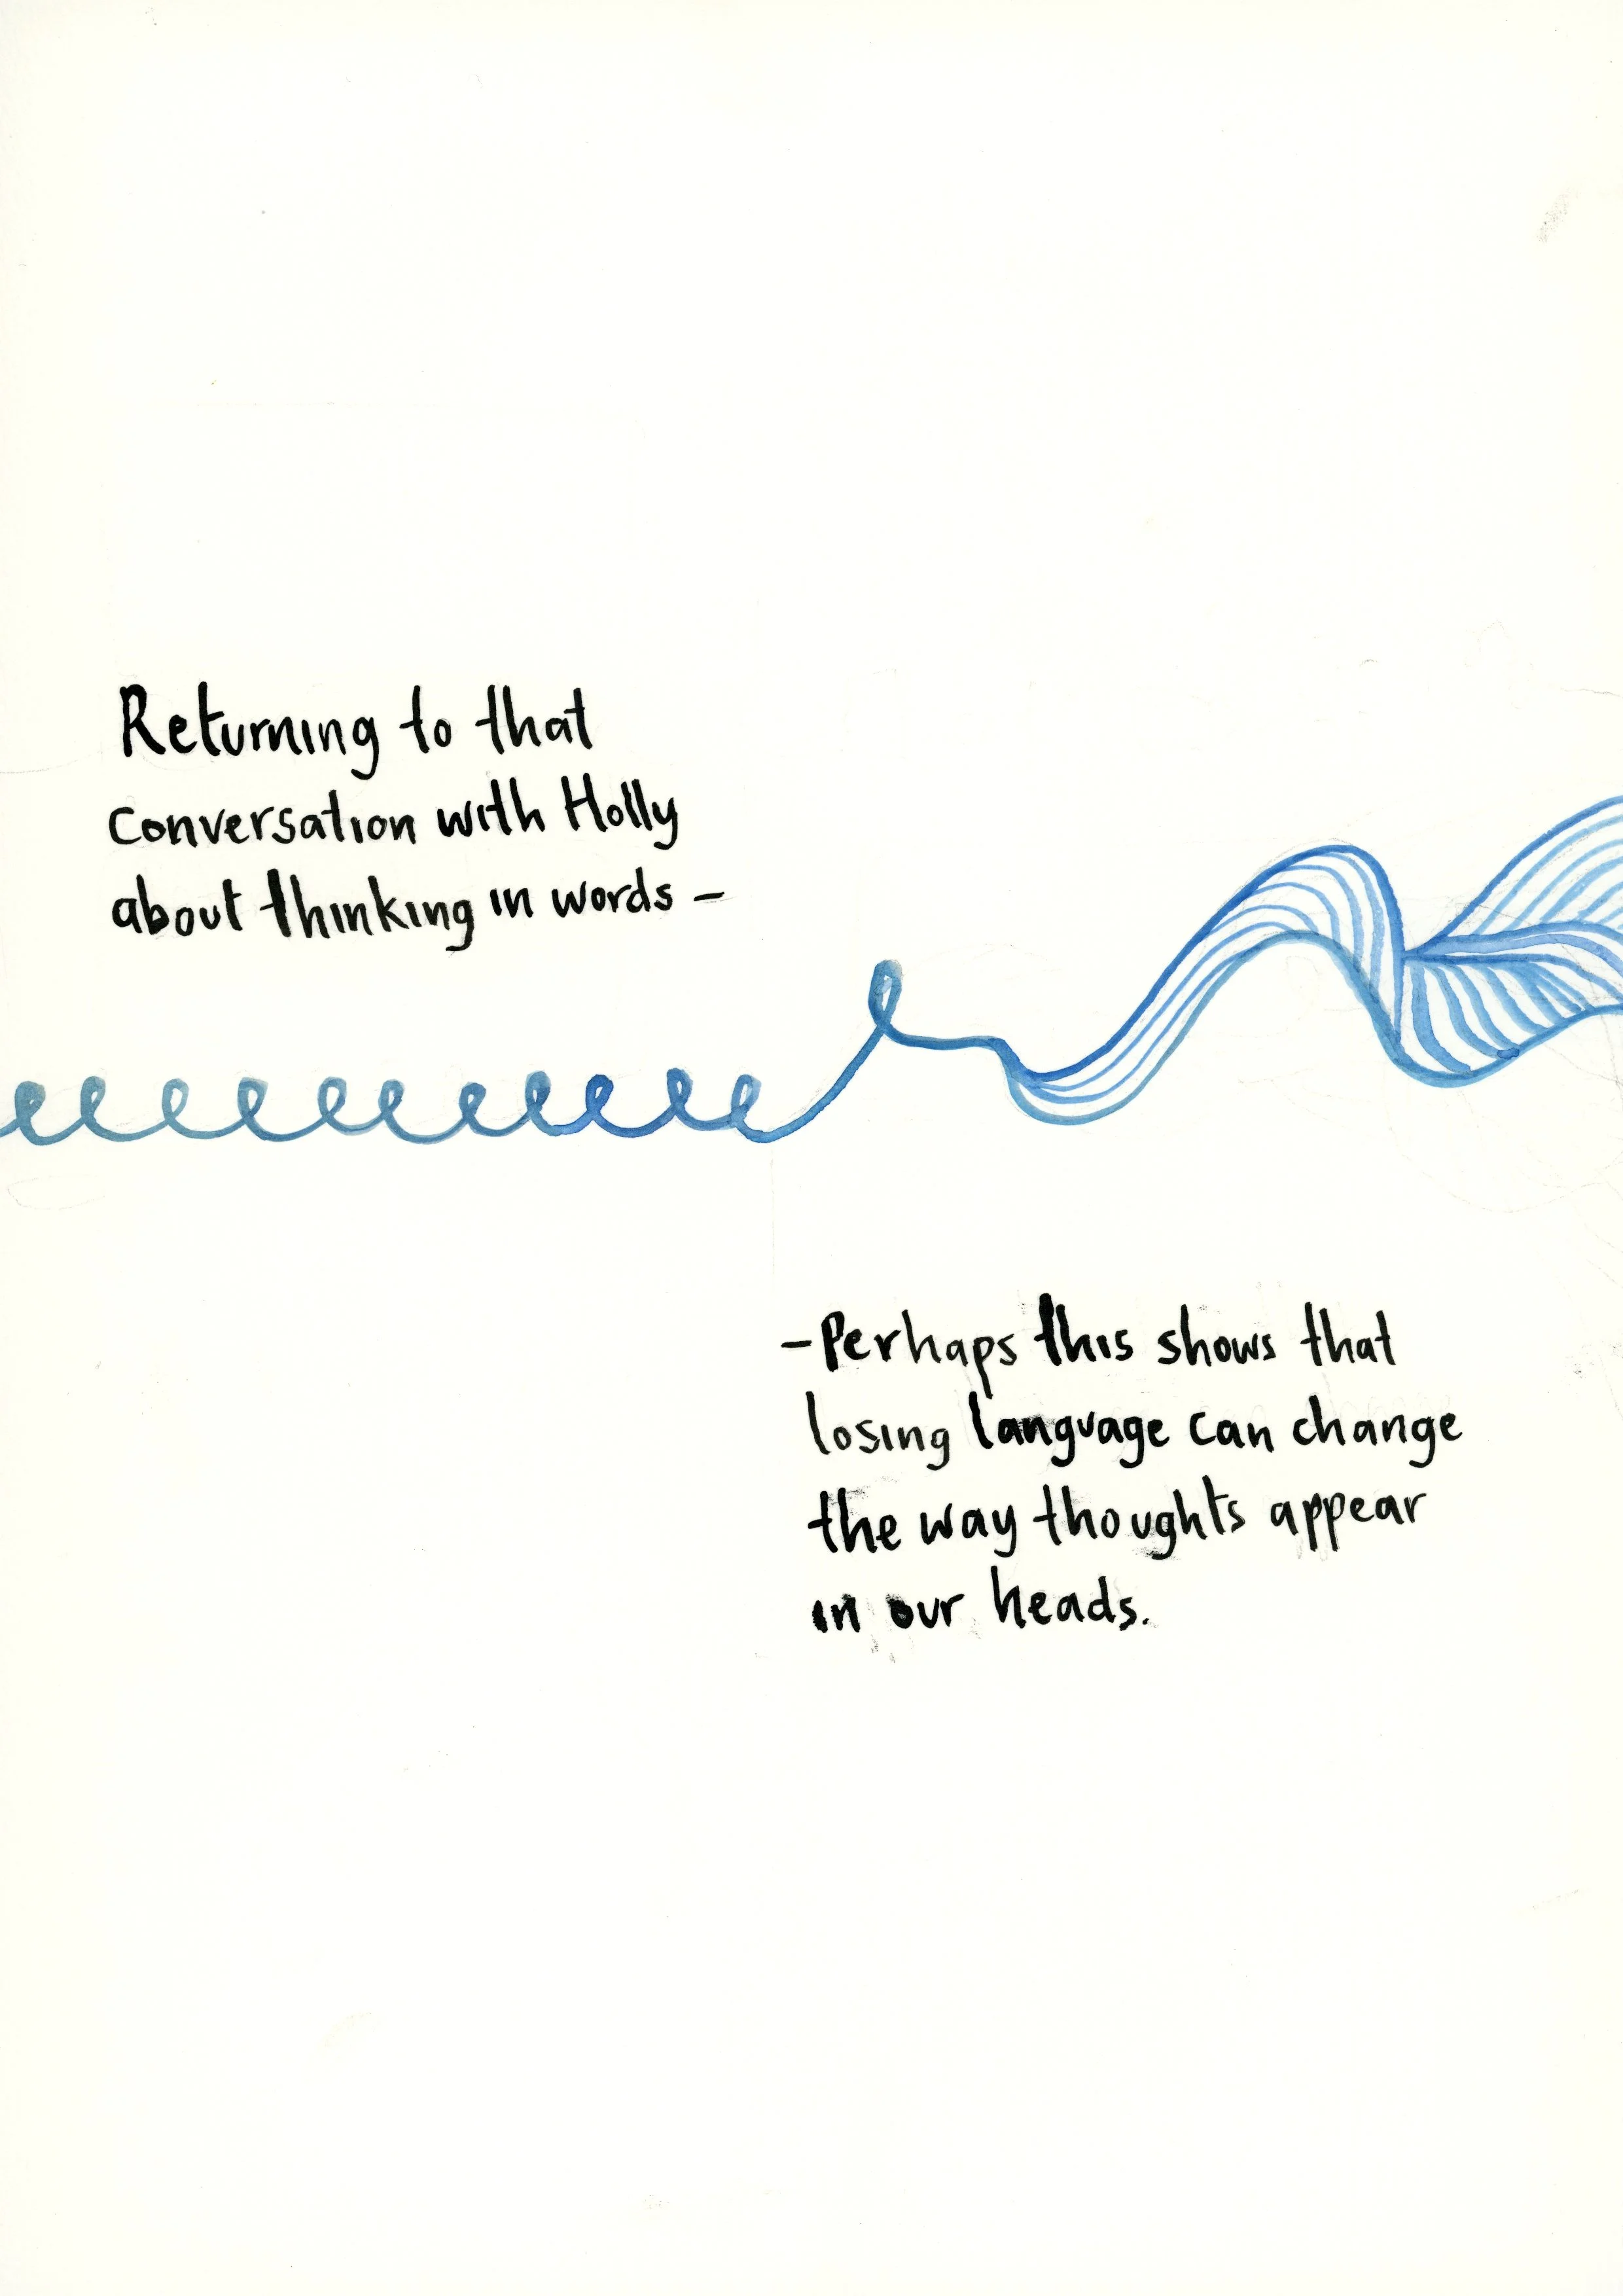 Returning to that
conversation with Holly
about thinking in words –
– Perhaps this shows that
losing language can change
the way thoughts appear
in our heads.